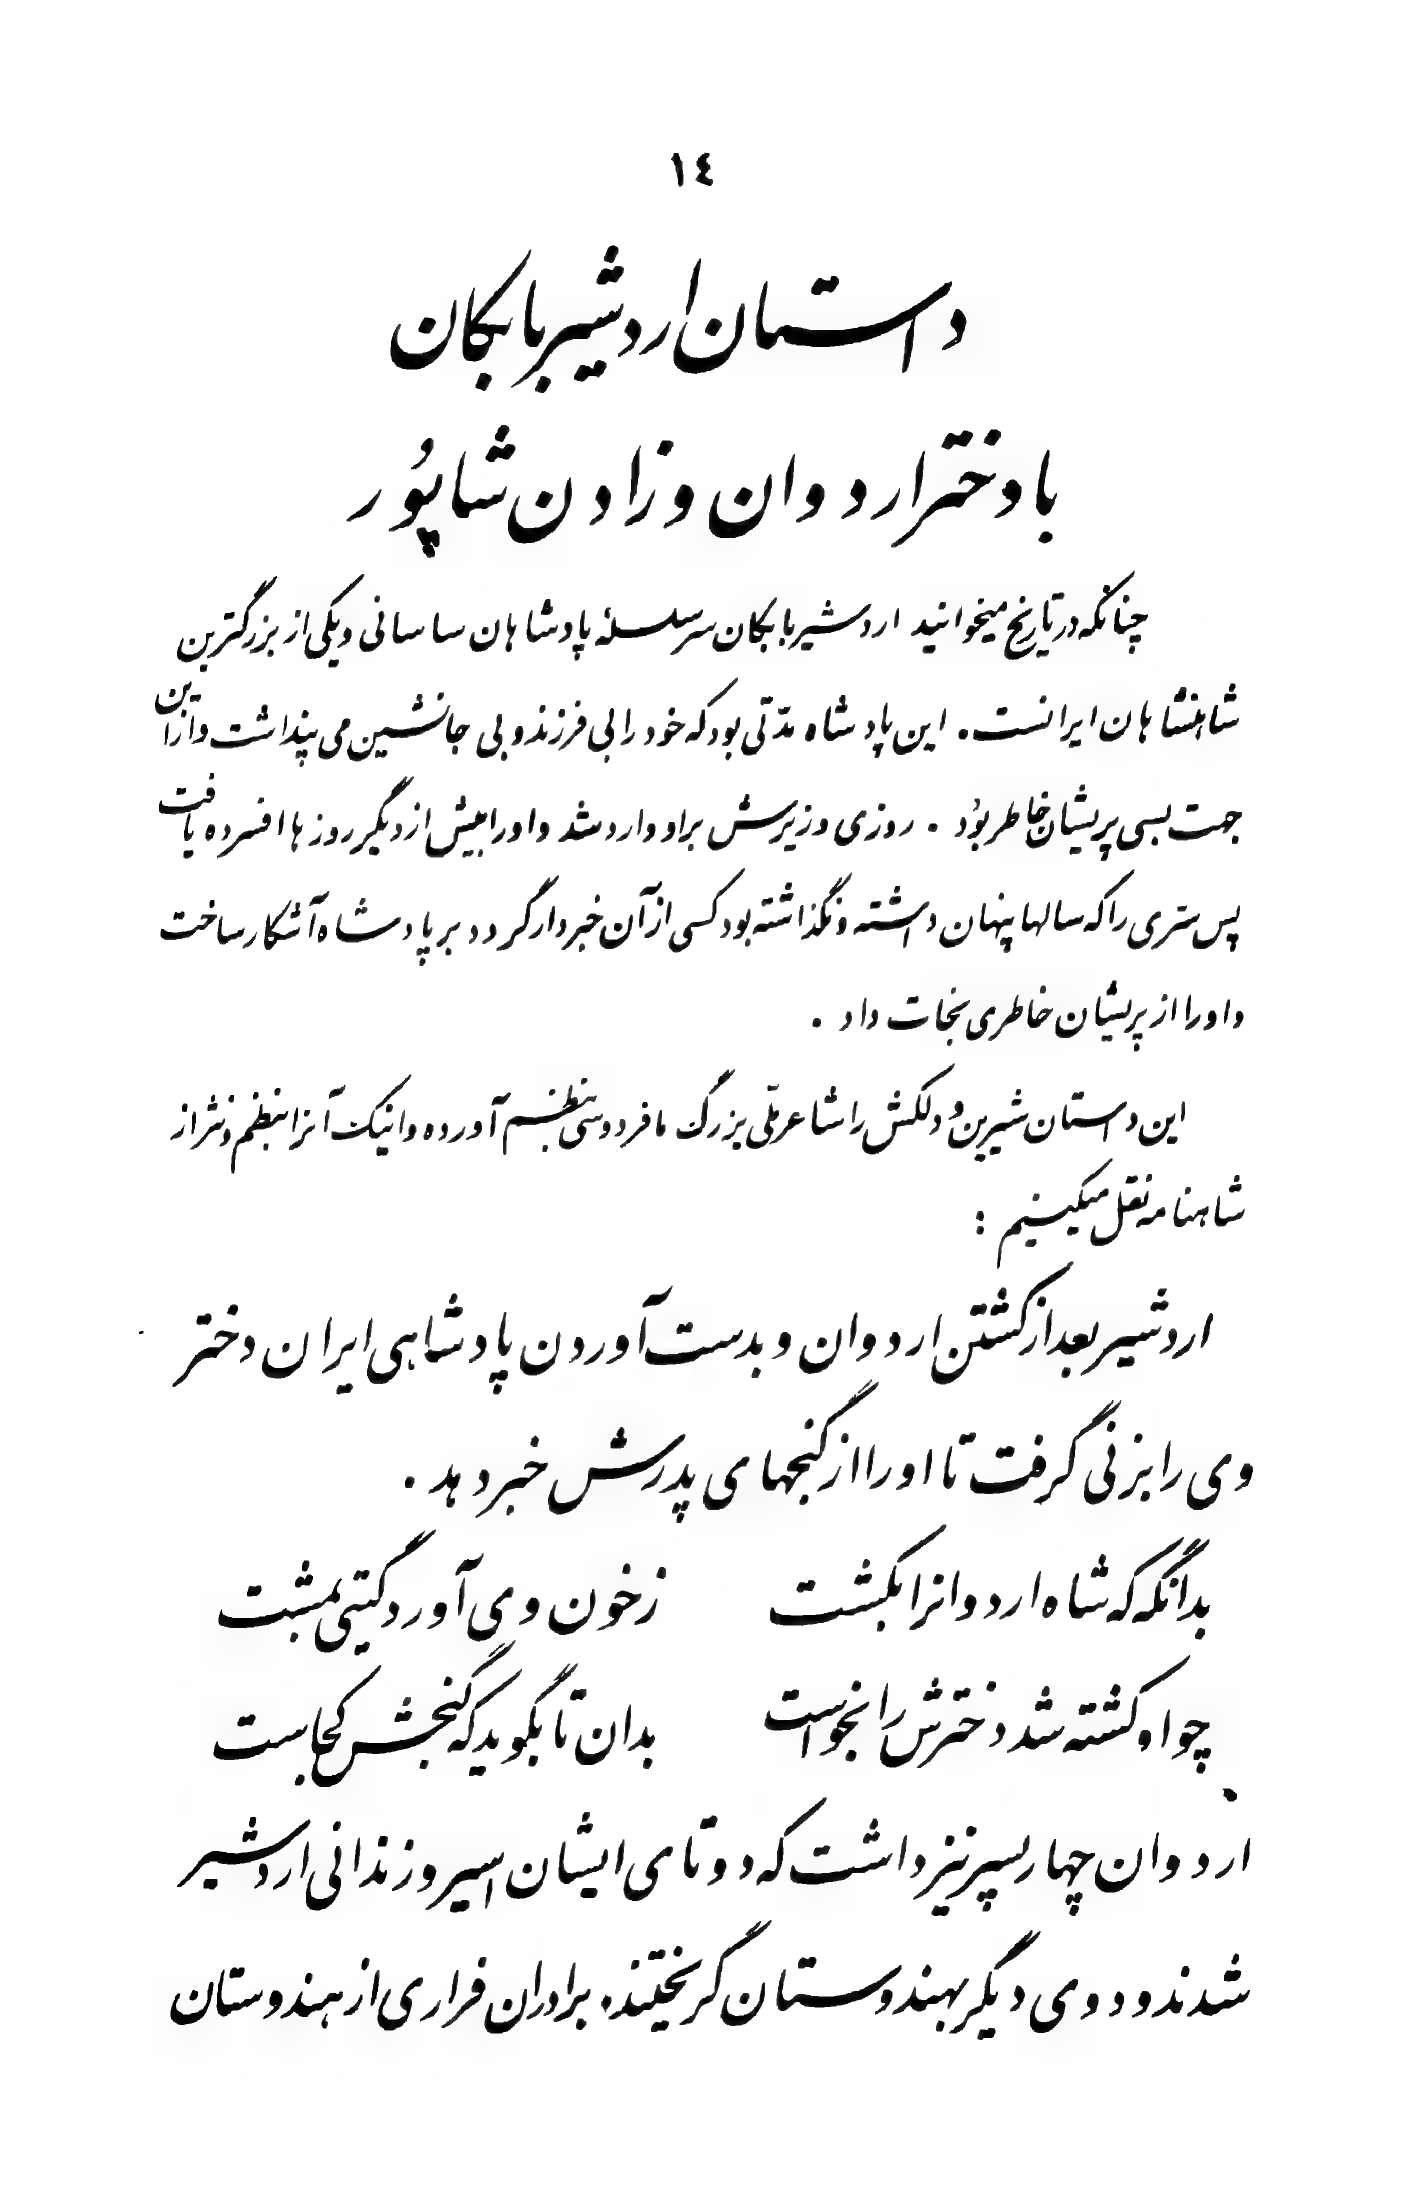 ١٤
داستان اردشیر بابکان
با دختر اردوان و زادن شاپُور
چنانکه در تاریخ میخوانید اردشیر بابکان سرسلسلهٔ پادشاهان ساسانی و یکی از بزرگترین
شاهنشاهان ایرانست. این پادشاه مدّتی بود که خود را بی فرزند و بی جانشین می پنداشت و از این
جهت بسی پریشان خاطر بوُد . روزی وزیرش بر او وارد شد و او را بیش از دیگر روزها افسرده یافت
پس سرّی را که سالها پنهان داشته و نگذاشته بود کسی از آن خبردار گردد بر پادشاه آشکار ساخت
و او را از پریشان خاطری نجات داد .
این داستان شیرین و دلکش را شاعر ملّی بزرگ ما فردوسی بنظم آورده و اینک آنرا بنظم و نثر از
شاهنامه نقل میکنیم :
اردشیر بعد از کشتن اردوان و بدست آوردن پادشاهی ایران دختر
وی را بزنی گرفت تا او را از گنجهای پدرش خبر دهد .
بدانگه که شاه اردوانرا بکشت ز خون وی آورد گیتی بمشت
چو او کشته شد دخترش را بخواست بدان تا بگوید که گنجش کجاست
اردوان چهار پسر نیز داشت که دو تای ایشان اسیر و زندانی اردشیر
شدند و دوی دیگر بهندوستان گریختند. برادران فراری از هندوستان